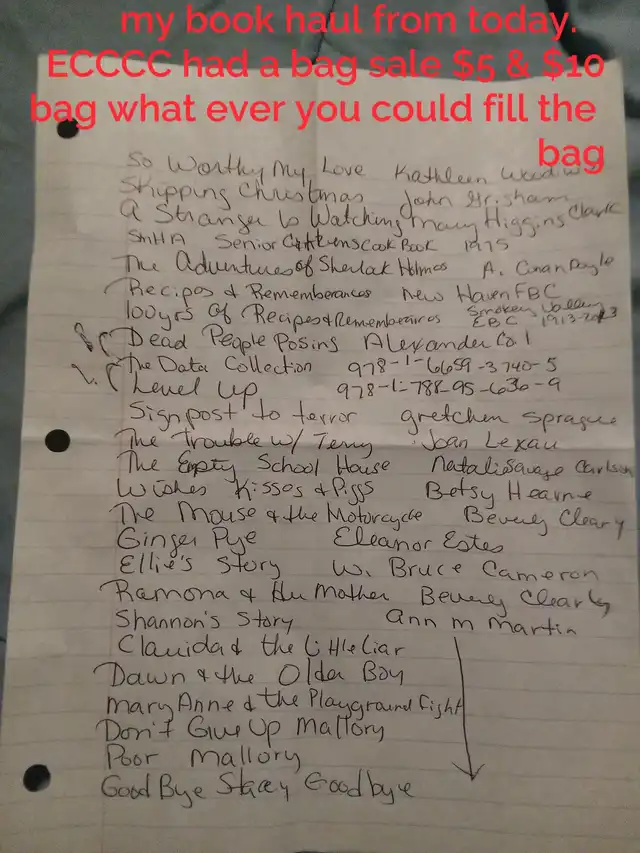 my book haul from today.
ECCCC had a bag sale $5 & $10
bag what ever you could fill the
bag
So Worthy My Love Kathleen
Skipping Christmas John Grisham
A Stranger Is Watching Mary Higgins Clark
SMHA Senior Citizens Cook Book 1975
The Adventures of Sherlak Holmes A. Conan Doyle
Recipes & Rememberances New Haven FBC
100yrs Of Recipes & Rememberances Smokey Valley
EBC 1913-2013
Dead People Posing Alexander Co 1
The Data Collection 978-1-6659-3740-5
Level Up 978-1-788-95-636-9
Signpost to terror gretchen sprague
The Trouble w/ Terry Joan Lexau
The Empty School House Natalie Savage Carlson
Wishes Kisses & Piggs Betsy Hearne
The Mouse & the Motorcycle Beverly Cleary
Ginger Pye Eleanor Estes
Ellie's Story W. Bruce Cameron
Ramona & Her Mother Beverly Clearly
Shannon's Story ann m Martin
Claudia & the Little Liar
Dawn & the Older Boy
Mary Anne & the Playground Fight
Don't Give Up Mallory
Poor Mallory
GoodBye Stacey Goodbye